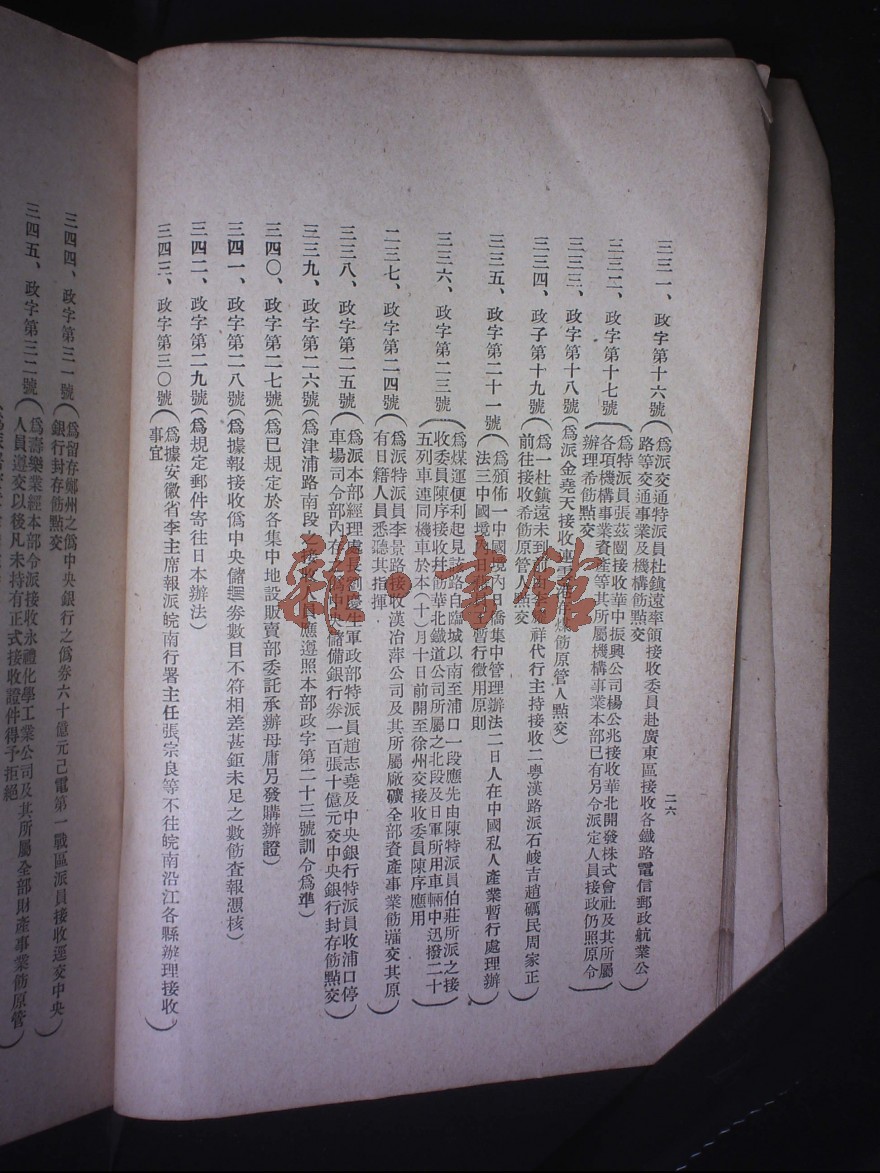 二六
三三一、政字第十六號（爲派交通特派員杜鎭遠率領接收委員赴廣東區接收各鐵路電信郵政航業公
路等交通事業及機構飭點交）
三三二、政字第十七號（爲特派員張茲闓接收華中振興公司楊公兆接收華北開發株式會社及其所屬
各項機構事業資產等其所屬機構事業本部已有另令派定人員接政仍照原令
辦理希飭點交）
三三三、政字第十八號（爲派金堯天接收連雲港存煤飭原管人點交）
三三四、政子第十九號（爲一杜鎭遠未到前由 祥代行主持接收二粤漢路派石峻吉趙礪民周家正
前往接收希飭原管人點交）
三三五、政字第二十一號（爲頒佈一中國境內日僑集中管理辦法二日人在中國私人產業暫行處理辦
法三中國境內日 暫行徵用原則）
三三六、政字第二三號（爲煤運便利起見該路自臨城以南至浦口一段應先由陳特派員伯莊所派之接
收委員陳序接收并飭華北鐵道公司所屬之北段及日軍所用車輛中迅撥二十
五列車連同機車於本（十）月十日前開至徐州交接收委員陳序應用）
二三七、政字第二四號（爲派特派員李景潞接收漢冶萍公司及其所屬廠礦全部資產事業飭造交其原
有日籍人員悉聽其指揮）
三三八、政字第二五號（爲派本部經理處長劉慶生軍政部特派員趙志堯及中央銀行特派員收浦口停
車場司令部內存 僞中央儲備銀行劵一百張十億元交中央銀行封存飭點交）
三三九、政字第二六號（爲津浦路南段 接收 員應遵照本部政字第二十三號訓令爲準）
三四〇、政字第二七號（爲已規定於各集中地設販賣部委託承辦毋庸另發購辦證）
三四一、政字第二八號（爲據報接收僞中央儲備劵數目不符相差甚鉅未足之數飭查報憑核）
三四二、政字第二九號（爲規定郵件寄往日本辦法）
三四三、政字第三〇號（爲據安徽省李主席報派皖南行署主任張宗良等不往皖南沿江各縣辦理接收
事宜）
三四四、政字第三一號（爲留存鄭州之僞中央銀行之僞券六十億元己電第一戰區派員接收運交中央
銀行封存飭點交）
三四五、政字第三二號（爲壽樂業經本部令派接收永禮化學工業公司及其所屬全部財產事業飭原管
人員遵交以後凡未持有正式接收證件得予拒絕）
雜·書館